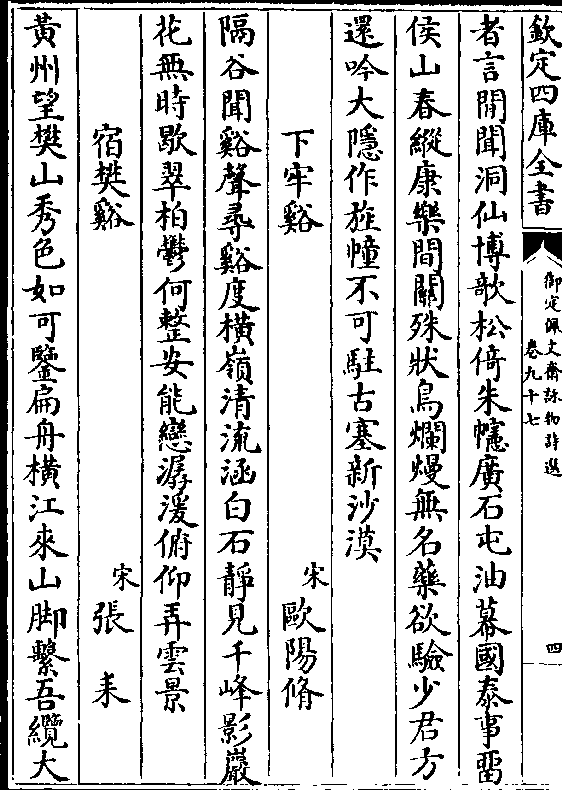 欽定四庫全書
御定佩文齋詠物詩選
卷九十七
四
者言閒聞洞仙博歌松倚朱幰廣石屯油幕國泰事留
侯山春縱康樂間關殊狀鳥爛熳無名藥欲驗少君方
還吟大隱作旌幢不可駐古塞新沙漠
下牢谿 宋歐陽脩
隔谷聞谿聲尋谿度橫嶺清流涵白石靜見千峰影巖
花無時歇翠柏鬱何整安能戀潺湲俯仰弄雲景
宿樊谿 宋張耒
黃州望樊山秀色如可鑒扁舟橫江來山脚繫吾纜大